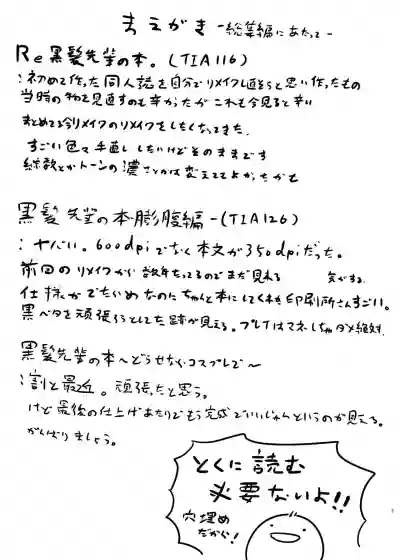 まえがき -総集編にあたって-
Re黒髪先輩の本。(TIA116)
:初めて作った同人誌を自分でリメイクし直そうと思い作ったもの
当時の物を見直すのも辛かったがこれも今見ると辛い
まとめてる今リメイクのリメイクをしたくなってきた。
すごい色々手直ししたいけどそのままです
線数とかトーンの濃さとかは変えてもよかったかも
黒髪先輩の本膨腹編-(TIA126)
:ヤバい。600dpiでなく本文が350dpiだった。
前回のリメイクから数年たってるのでまだ見れる 気がする。
仕様がでたらめなのにちゃんと本にしてくれる印刷所さんすごい。
黒ベタを頑張ろうとした跡が見える。プレイはマネしちゃダメ絶対。
黒髪先輩の本〜どうせならコスプレで〜
:割と最近。頑張ったと思う。
けど最後の仕上げあたりでもう完成でいいじゃんというのが見える。
がんばりましょう。
とくに読む
必要ないよ!!
穴埋め
だから!